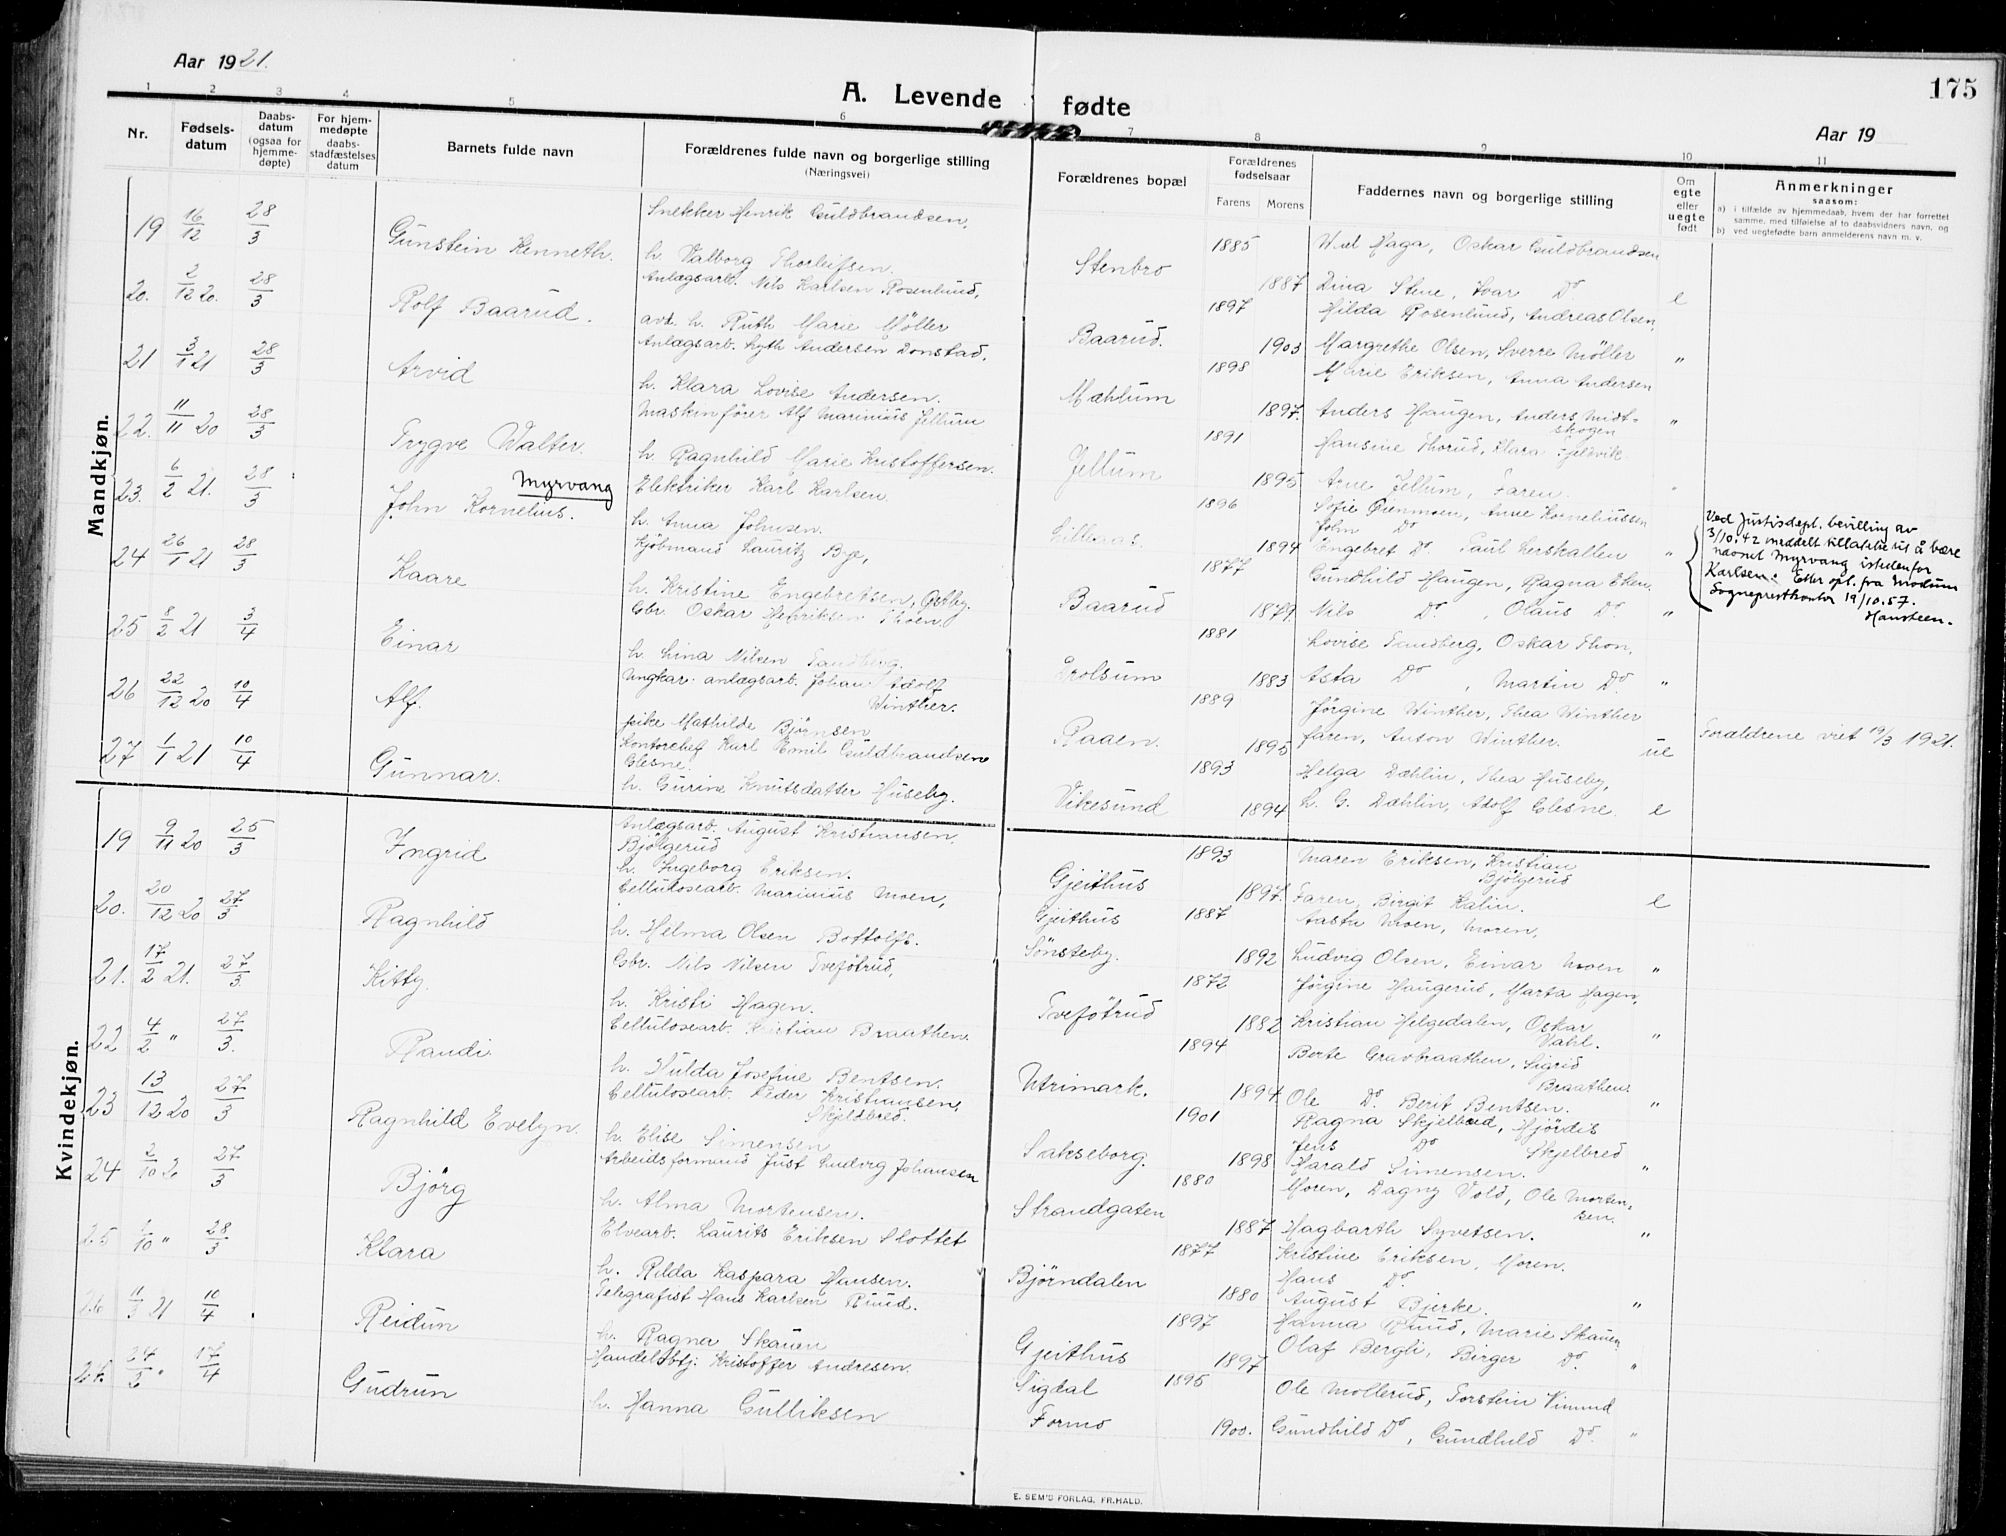 Aar 1921.
175
A. Levende fødte
Aar 19
1 2 3 4 5 6 7 8 9 10 11
Nr.
Fødsels-
datum
Daabs-
datum
(ogsaa for
hjemme-
døpte)
For hjem-
medøpte
daabs-
stadfæstelses
datum
Barnets fulde navn
Forældrenes fulde navn og borgerlige stilling
(Næringsvei)
Forældrenes bopæl
Forældrenes
fødselsaar
Farens Morens
Faddernes navn og borgerlige stilling
Om
egte
eller
uegte
født
Anmerkninger
saasom:
a) i tilfælde av hjemmedaab, hvem der har forrettet
samme, med tilføielse af to daabsvidners navn, og
b) ved uegtefødte barn anmelderens navn m. v.
Mandkjøn.
19 16/12 28/3 Gunstein Kenneth. Snekker Henrik Guldbrandsen,
h. Valborg Thorleifsen. Stenbro 1885 1887
Haga, Oskar Guldbrandsen
Dina Stene, Ivar Do e
20. 2/12 20. 28/3 Rolf Baarud. Anlægsarb. Nils Karlsen Rosenlund,
h. Ruth Marie Möller Baarud. 1897 1903
Hilda Rosenlund, Andreas Olsen,
Margrethe Olsen, Sverre Möller "
21 3/1 21 28/3 Arvid Anlægsarb. Andersen Donstad,
h. Klara Lovise Andersen. Mæhlum 1898 1897.
Marie Eriksen, Anna Andersen
Anders Haugen, Anders Midt-
skogen "
22. 11/11 20 28/3 Trygve Walter. Maskinfører Alf Marinius Jellum
h. Ragnhild Marie Kristoffersen. Jellum 1891 1895
Hansine Thorud, Klara Fjeldvik
Arne Jellum, Faren. "
23. 6/2 21. 28/3 John Kornelius. Myrvang Elektriker Karl Karlsen.
h. Anna Johnsen. 1896 1894
Sofie Øienmoen, Anne Korneliussen
John Do
Engebret Do. Paul Lerskallen "
Ved Justisdept. bevilling av
3/10.42 meddelt tillatelse til å bære
navnet Myrvang istedenfor
Karlsen. Etter opl. fra Modum
Sogneprestkontor 19/10.57.
Hansteen.
24 26/1 21 28/3 Kaare Kjöbmand Lauritz Bye,
h. Kristine Engebretsen, Østby. Baarud 1877 1879.
Gundhild Haugen, Ragna Eken.
Nils Do, Olaus Do. "
25 8/2 21 3/4 Einar Gbr. Oskar Henriksen Thoen.
h. Lina Nilsen Sandberg. Grolsum 1881 1883
Lovise Sandberg, Oskar Thon,
Asta Do, Martin Do. "
26 22/12 20 10/4 Alf. Ungkar. anlægsarb. Johan Adolf
Winther.
pike Mathilde Björnsen Raaen. 1889 1895
Jörgine Winther, Thea Winther
faren, Anton Winther. ue Forældrene viet 19/3 1921.
27 1/1 21 10/4 Gunnar. Kontorchef Karl Emil Guldbrandsen
Glesne.
h. Gurine Knutsdatter Huseby. Vikesund 1893 1894
Helga Dæhlin, Thea Huseby,
L. G. Dæhlin, Adolf Glesne. e
Kvindekjøn.
19 9/11 20 25/3 Ingrid Anlægsarb. August Kristiansen.
Bjölgerud
h. Ingeborg Eriksen. Gjeithus 1893 1897.
Maren Eriksen, Kristian
Bjölgerud
Faren, Birgit Kalin. e
20. 20/12 20 27/3 Ragnhild Cellulosearb. Marinius Moen,
h. Helma Olsen Bottolfs. Gjeithus
Sönsteby. 1887 1892
Aasta Moen, Moren,
Ludvig Olsen, Einar Moen "
21. 17/2 21. 27/3 Kitty. Gbr. Nils Nilsen Tveføtrud,
h. Kristi Hagen. Tveføtrud 1872 1882
Jörgine Haugerud, Marta Hagen,
Kristian Helgedalen, Oskar
Vahl. "
22 4/2 " 27/3. Randi. Cellulosearb. Kristian Braathen.
h. Hulda Josefine Bentsen. Utrimark. 1894 1894.
Berte Gravbraathen, Sigrid
Braathen
Ole Do. Berit Bentsen. "
23 13/12 20 27/3 Ragnhild Evelyn. Cellulosearb. Peder Kristiansen,
Skjeldbred.
h. Elise Simensen Sakseborg. 1901 1898
Ragna Skjelbred, Hjördis
Jens Do Skjelbred
Harald Simensen. "
24 2/10 20 27/3 Björg Arbeidsformand Just Ludvig Johansen
h. Alma Mortensen. Strandgaten 1880 1887
Moren, Dagny Vold, Ole Morten-
sen.
Hagbarth Syvetsen. "
25 1/10 " 28/3 Klara Elvearb. Laurits Eriksen Slottet
h. Rilda Kaspara Hansen. Björndalen 1877 1880
Kristine Eriksen, Moren.
Hans Do.
August Bjerke. "
26 11/3 21 10/4 Reidun Telegrafist Hans Karlsen Ruud.
h. Ragna Skauen Gjeithus 1897 1897
Hanna Ruud, Marie Skauen
Olaf Bergli, Birger Do. "
27. 24/2 " 17/4 Gudrun Handelsbtj. Kristoffer Andresen.
h. Hanna Gulliksen Sigdal
Formo 1895 1900.
Ole Mollerud, Torstein Vimmd
Gundhild Do, Gundhild Do. "
E. SEM'S FORLAG, FR.HALD.